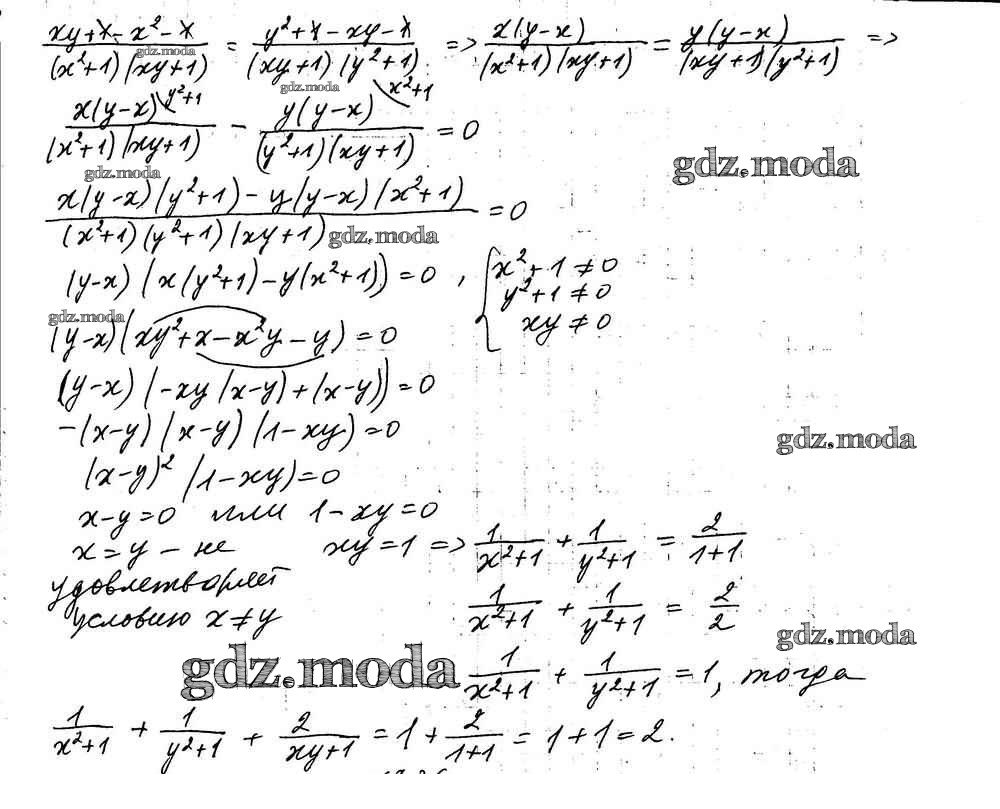 (xy+1-x²-1)/((x²+1)(xy+1)) = (y²+1-xy-1)/((xy+1)(y²+1)) => x(y-x)/((x²+1)(xy+1)) = y(y-x)/((xy+1)(y²+1)) =>
gdz.moda
gdz.moda
x(y-x)\y²+1/((x²+1)(xy+1)) - y(y-x)\x²+1/((y²+1)(xy+1)) = 0
gdz.moda
gdz.moda
(x(y-x)(y²+1)-y(y-x)(x²+1))/((x²+1)(y²+1)(xy+1)) = 0
gdz.moda
(y-x)(x(y²+1)-y(x²+1))=0, { x²+1≠0
y²+1≠0
xy≠0
gdz.moda
(y-x)(xy²+x-x²y-y)=0
(y-x)(-xy(x-y)+(x-y))=0
-(x-y)(x-y)(1-xy)=0
gdz.moda
(x-y)²(1-xy)=0
x-y=0 или 1-xy=0
x=y – не xy=1 => 1/(x²+1) + 1/(y²+1) = 2/(1+1)
удовлетворяет
условию x≠y 1/(x²+1) + 1/(y²+1) = 2/2
gdz.moda
gdz.moda
1/(x²+1) + 1/(y²+1) = 1, тогда
1/(x²+1) + 1/(y²+1) + 2/(xy+1) = 1 + 2/(1+1) = 1+1=2.